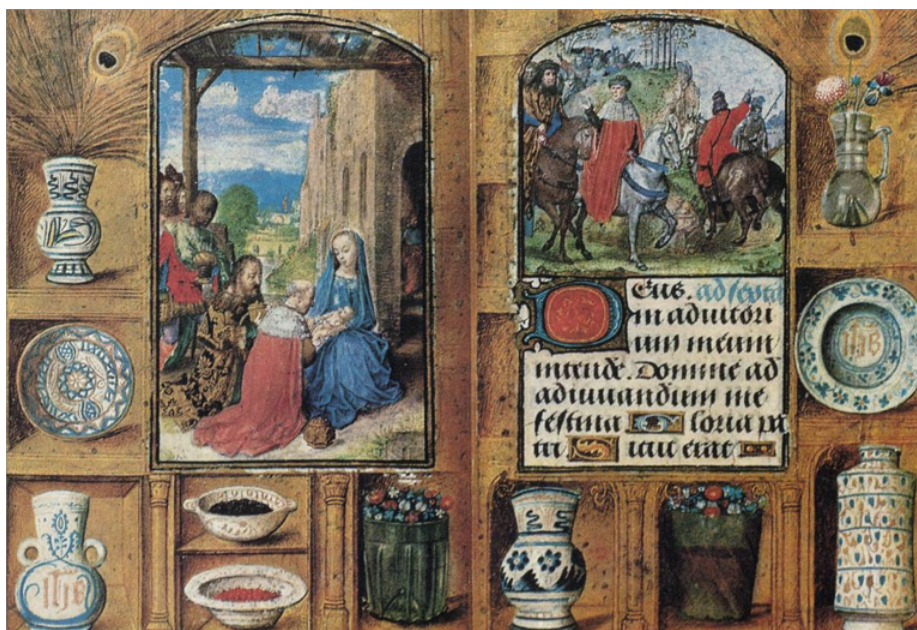 Eus. ad sexta
in adiutori
um meum
intende. Domine ad
adiuuandum me
festina loria pa
tri Sicut erat
ihs
ihs